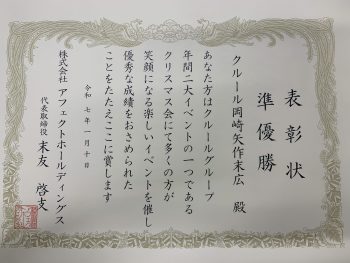 表彰状
準優勝
クルール岡崎矢作末広 殿
あなた方はクルールグループ
年間二大イベントの一つである
クリスマス会にて多くの方が
笑顔になる楽しいイベントを催し
優秀な成績をおさめられた
ことをたたえここに賞します
令和 七年一月十日
株式会社 アフェクトホールディングス
代表取締役 末友 啓支